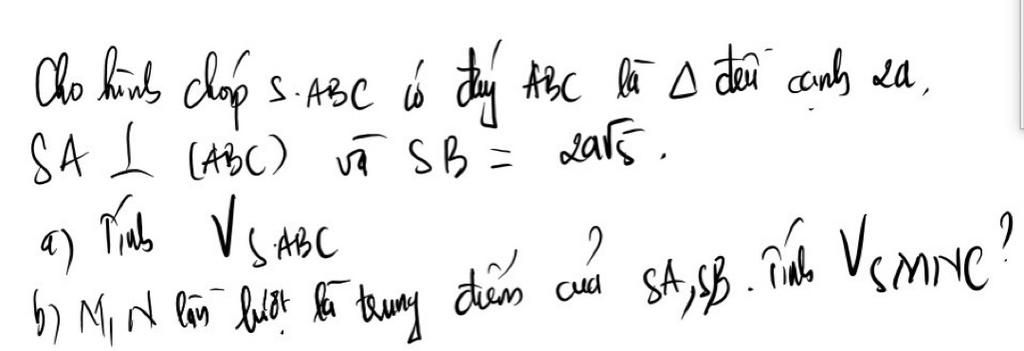 Cho hình chóp S.ABC có đáy ABC là Δ đều cạnh 2a,
SA ⊥ (ABC) và SB = 2a√5.
a) Tính V S.ABC
b) M, N lần lượt là trung điểm của SA, SB. Tính V SMNC?